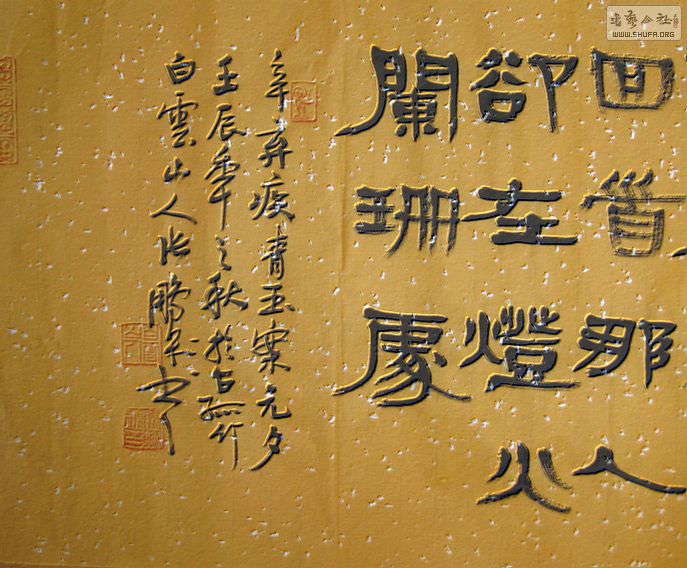 回首那人
卻在燈火
闌珊處
辛弃疾青玉案元夕
壬辰年之秋於古孤竹
白雲山人张鵬书
書藝公社
WWW.SHUFA.ORG